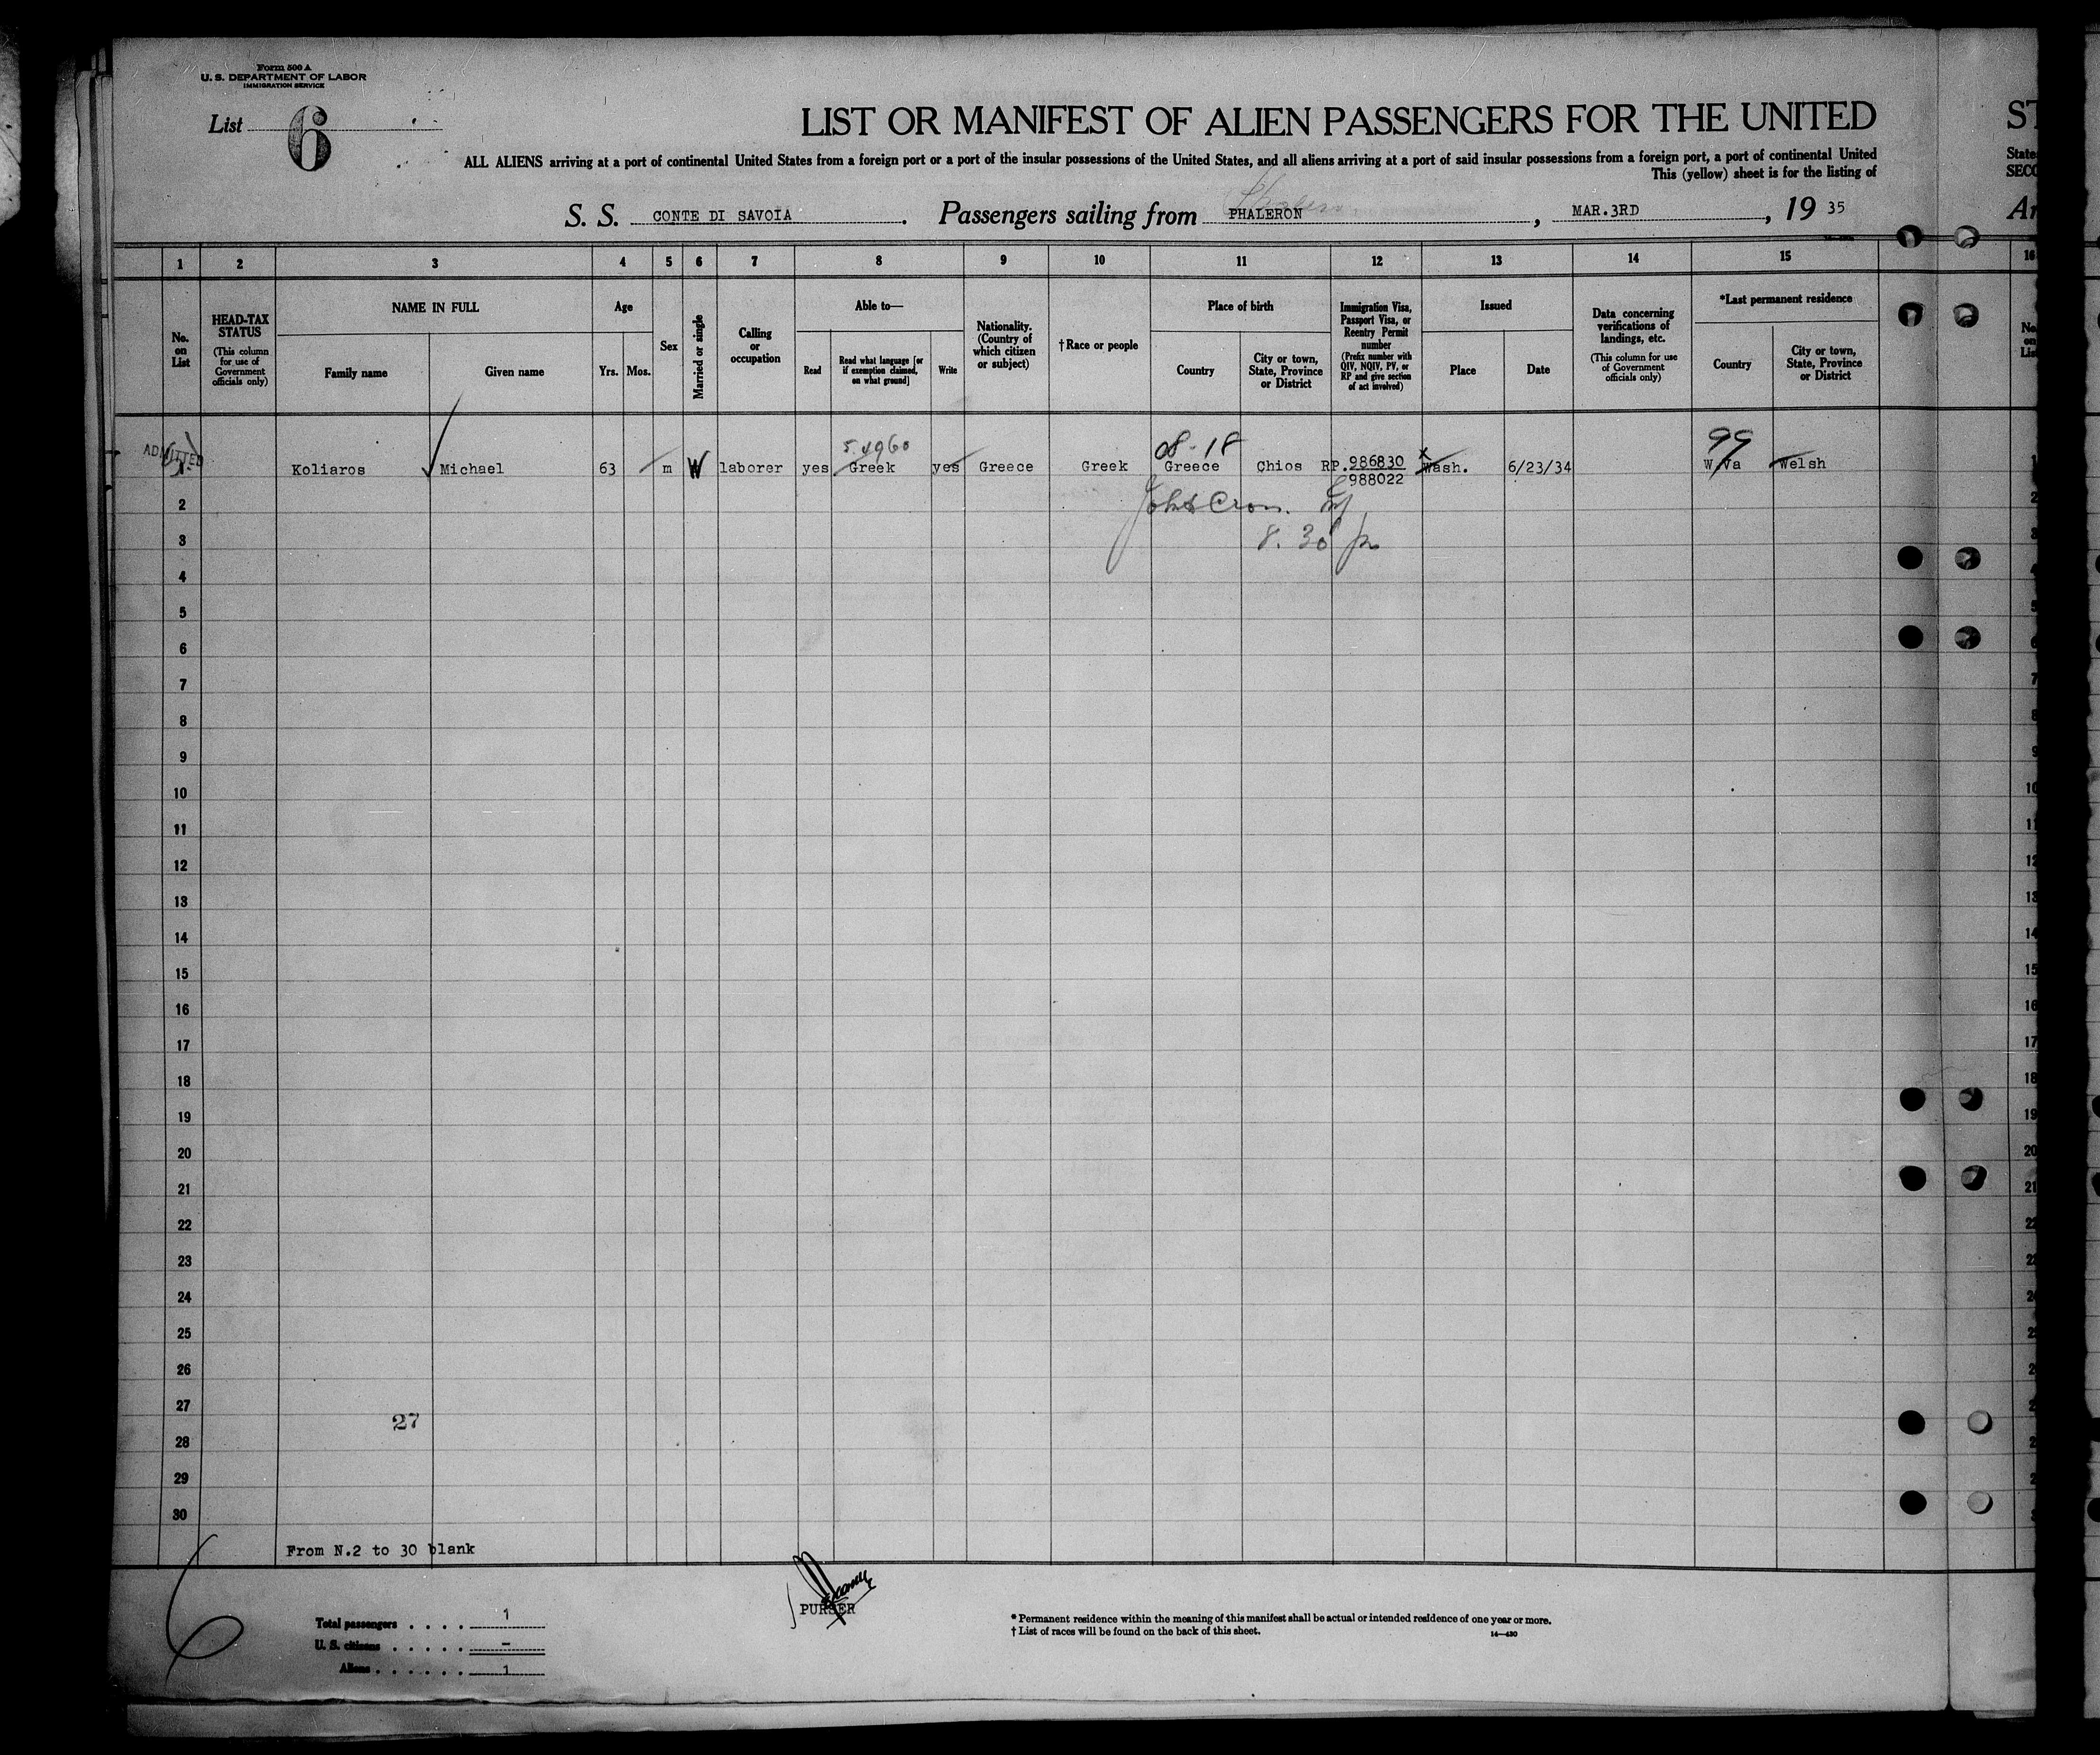 Form 500 A
U. S. DEPARTMENT OF LABOR
IMMIGRATION SERVICE
List 6
LIST OR MANIFEST OF ALIEN PASSENGERS FOR THE UNITED
ST
ALL ALIENS arriving at a port of continental United States from a foreign port or a port of the insular possessions of the United States, and all aliens arriving at a port of said insular possessions from a foreign port, a port of continental United
State
This (yellow) sheet is for the listing of
SECO
S. S. CONTE DI SAVOIA. Passengers sailing from PHALERON, MAR.3RD, 19 35
Ar
1 2 3 4 5 6 7 8 9 10 11 12 13 14 15 16
No. on List
HEAD-TAX STATUS
(This column for use of Government officials only)
NAME IN FULL
Family name
Given name
Age
Yrs. Mos.
Sex
Married or single
Calling or occupation
Able to—
Read
Read what language [or if exemption claimed, on what ground]
Write
Nationality. (Country of which citizen or subject)
†Race or people
Place of birth
Country
City or town, State, Province or District
Immigration Visa, Passport Visa, or Reentry Permit number
(Prefix number with QIV, NQIV, PV, or RP and give section of act involved)
Issued
Place
Date
Data concerning verifications of landings, etc.
(This column for use of Government officials only)
*Last permanent residence
Country
City or town, State, Province or District
No. on List
ADMITTED
08-18
99
1 Koliaros Michael 63 m W laborer yes Greek yes Greece Greek Greece Chios RP.986830 Wash. 6/23/34 W/Va Welsh
988022
2
8.30
3
4
5
6
7
8
9
10
11
12
13
14
15
16
17
18
19
20
21
22
23
24
25
26
27
27
28
29
30
From N.2 to 30 blank
6
PURSER
Total passengers . . . . 1
U. S. citizens . . . . . –
Aliens . . . . . . 1
* Permanent residence within the meaning of this manifest shall be actual or intended residence of one year or more.
† List of races will be found on the back of this sheet.
14—430